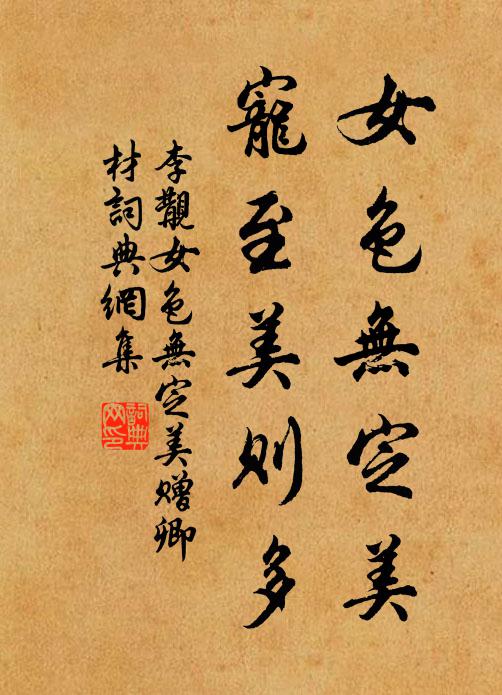 女色無定美
寵至美則多
李覯女色無定美贈卿
材詞典網集
詞典
网印